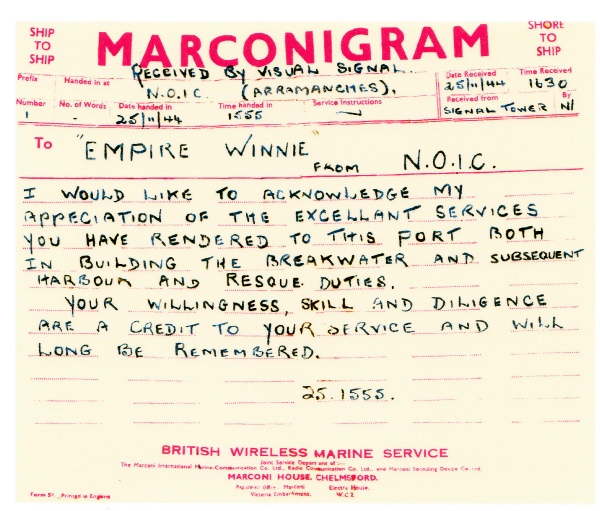 SHIP TO SHIP
MARCONIGRAM
SHORE TO SHIP
RECEIVED BY VISUAL SIGNAL.
Prefix
Handed in at
N.O.I.C. (ARRAMANCHES).
Date Received
25/11/44
Time Received
1630
Number
1
No. of Words
-
Date handed in
25/11/44
Time handed in
1555
Service Instructions
Received from
SIGNAL TOWER
By
N/
To "EMPIRE WINNIE" FROM N.O.I.C.
I WOULD LIKE TO ACKNOWLEDGE MY
APPECIATION OF THE EXCELLANT SERVICES
YOU HAVE RENDERED TO THIS PORT BOTH
IN BUILDING THE BREAKWATER AND SUBSEQUENT
HARBOUR AND RESQUE DUTIES.
YOUR WILLINGNESS, SKILL AND DILIGENCE
ARE A CREDIT TO YOUR SERVICE AND WILL
LONG BE REMEMBERED.
25.1555.
BRITISH WIRELESS MARINE SERVICE
Joint Service Department of
The Marconi International Marine Communication Co. Ltd., Radio Communication Co. Ltd., and Marconi Sounding Device Co. Ltd.
MARCONI HOUSE, CHELMSFORD.
Registered Office Marconi Electra House,
Victoria Embankment, W.C.2
Form 5 Printed in England